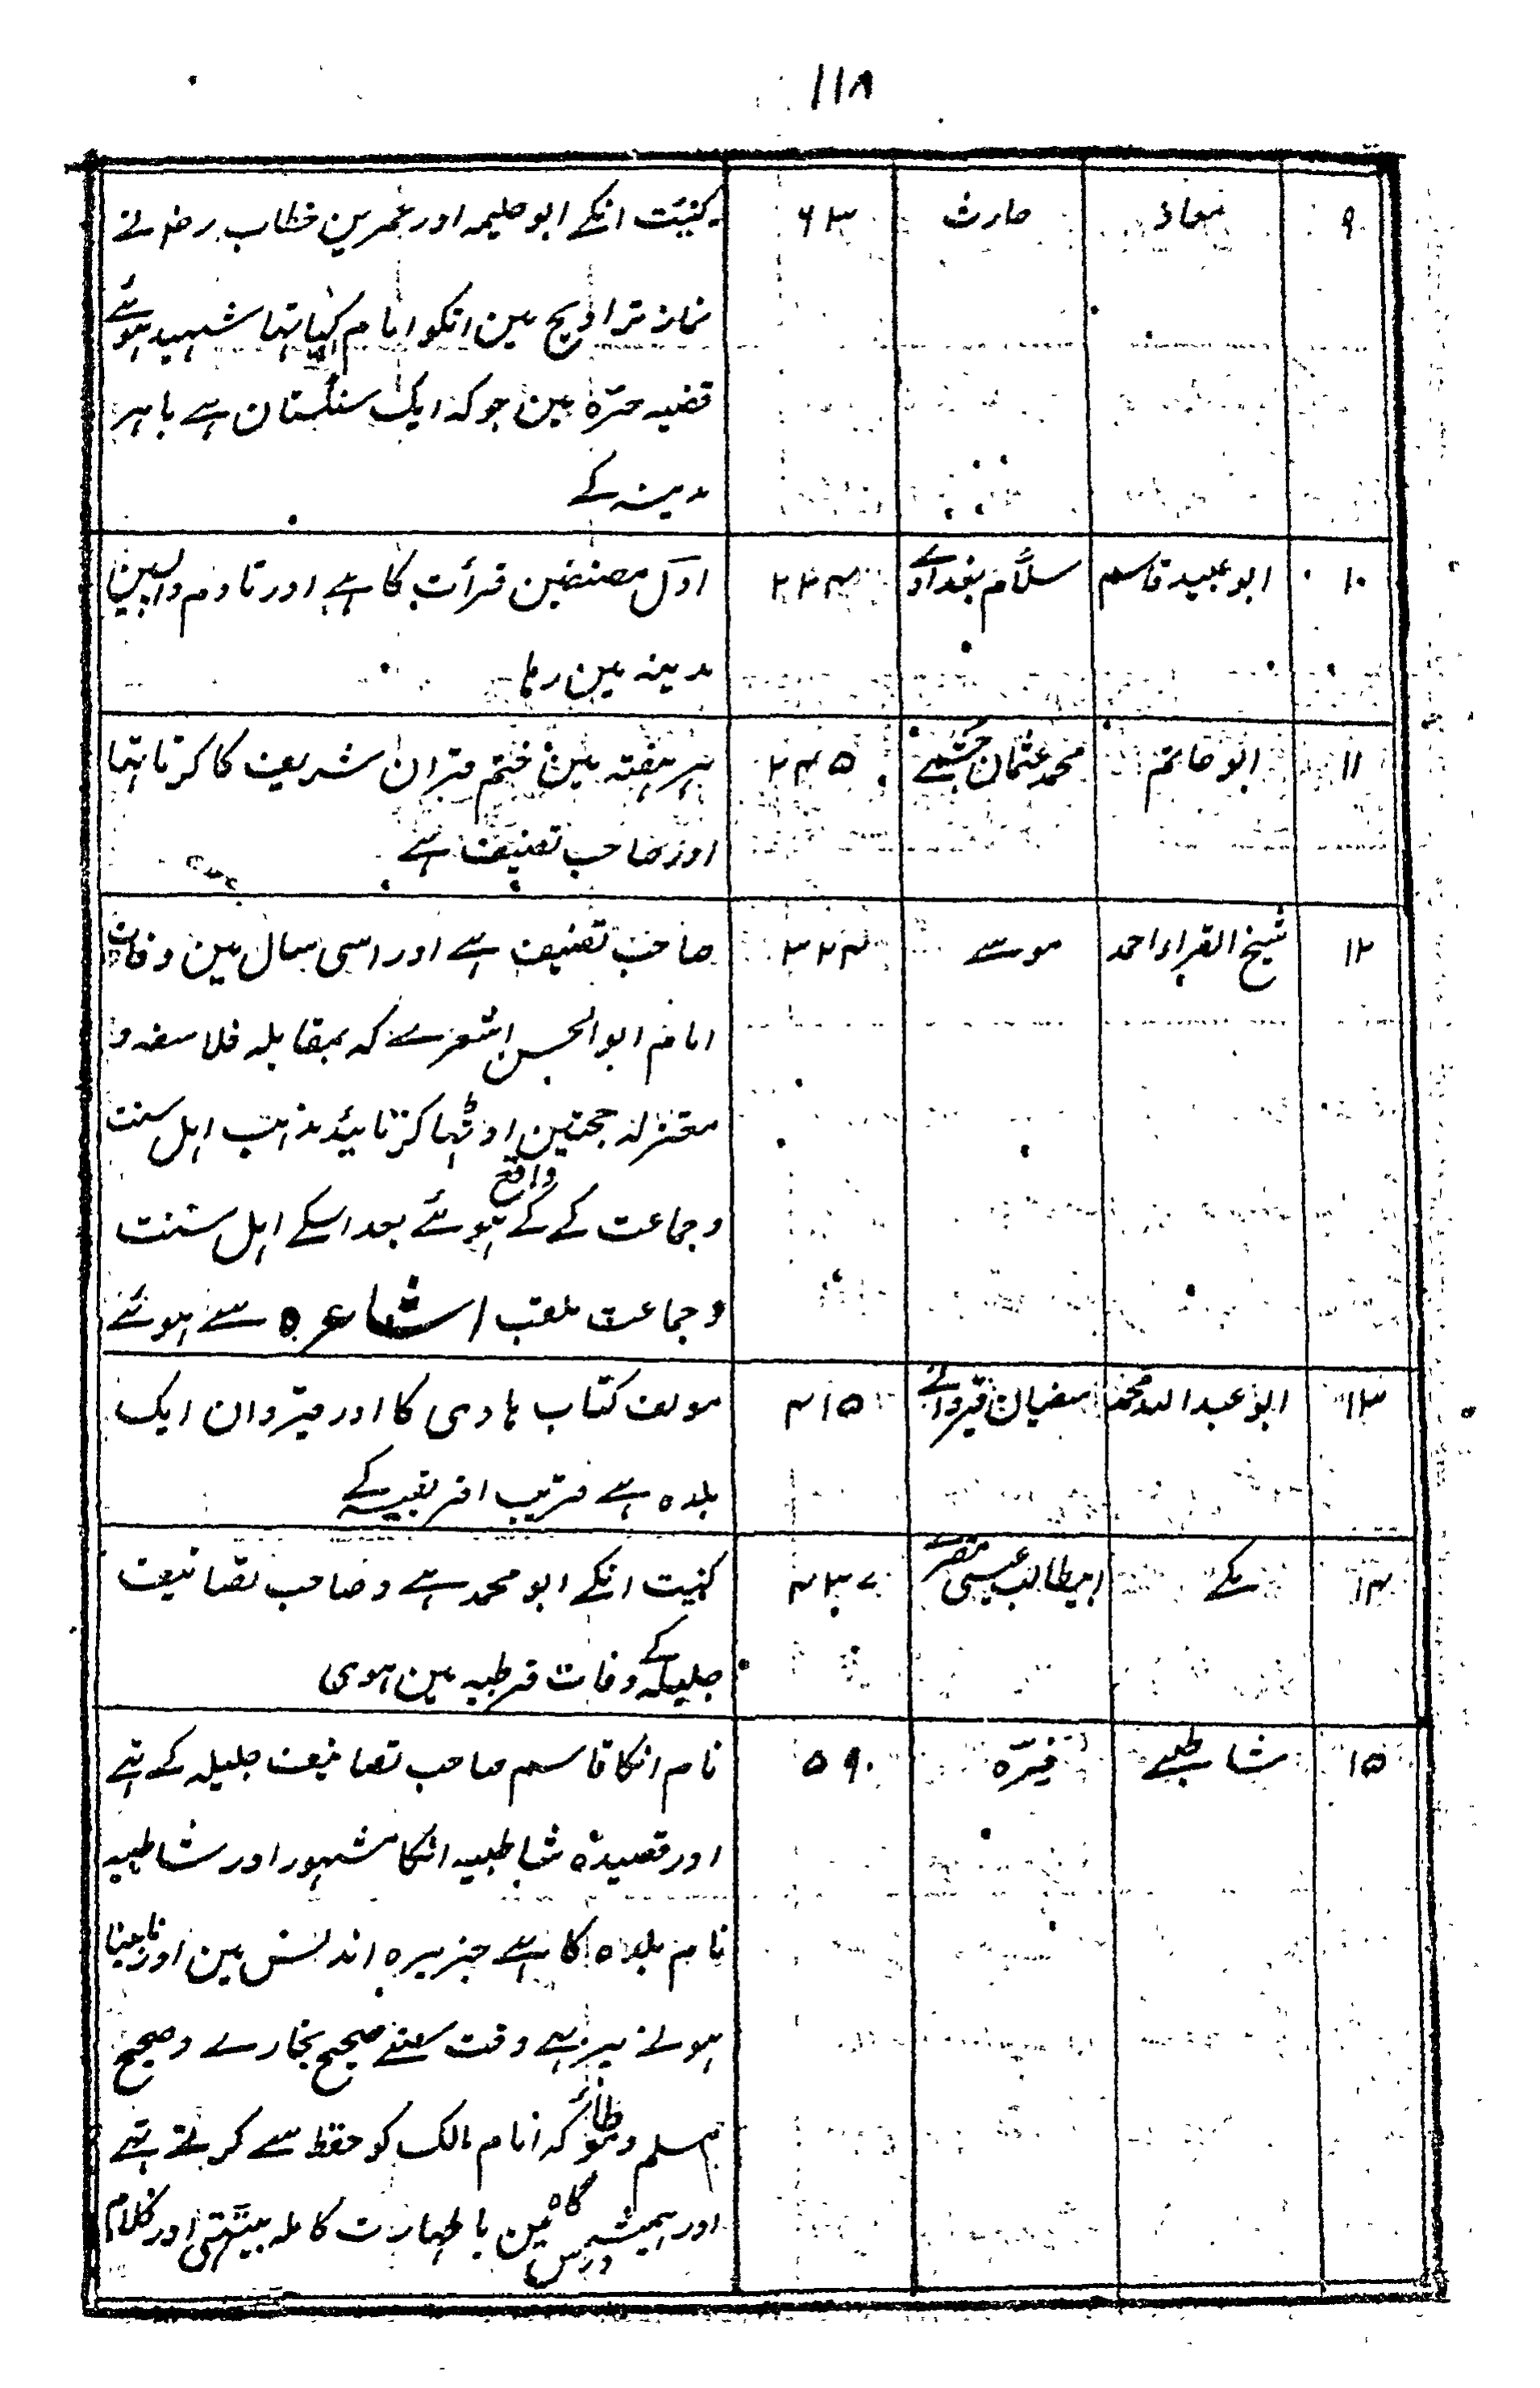 ۱۱۸
۹ معاذ حارث ۶۳ کنیت انکے ابو حلیمہ اور عمر بن خطاب رضہ نے
نماز تراویح مین انکو امام کیا تہا شہید ہوئے
قضیہ حرّہ مین جو کہ ایک سنگستان ہے باہر
مدینہ کے
۱۰ ابو عبید قاسم سلّام بغدادے ۲۲۴ اوّل مصنفین قرأت کا ہے اور تا دم واپسین
مدینہ مین رہا
۱۱ ابو حاتم محمد عثمان ۲۴۵ ہر ہفتہ مین ختم قران شریف کا کرتا تہا
اور صاحب تصنیف ہے
۱۲ شیخ القراء احمد موسے ۳۲۴ صاحب تصنیف ہے اور اسی سال مین وفات
امام ابو الحسن اشعرے کہ بمقابلہ فلاسفہ و
معتزلہ حجتین اوٹہا کر تائید مذہب اہل سنت
و جماعت کے کے واقع ہوئے بعد اسکے اہل سنت
و جماعت ملقب اشاعرہ سے ہوئے
۱۳ ابو عبد اللہ محمد سفیان قیروانے ۴۱۵ مولف کتاب ہادی کا اور قیروان ایک
بلدہ ہے قریب افریقیہ کے
۱۴ مکے ابیطالب عیسی ۴۳۷ کنیت انکے ابو محمد ہے و صاحب تصانیف
جلیلہ کے وفات قرطبہ مین ہوی
۱۵ شاطبے فیرّہ ۵۹۰ نام انکا قاسم صاحب تصانیف جلیلہ کے تہے
اور قصیدہ شاطبیہ انکا مشہور اور شاطبیہ
نام بلدہ کا ہے جزیرہ اندلس مین اور نابینا
ہونے پر بہے وقت سننے صحیح بخارے و صحیح
مسلم و مؤطا کہ امام مالک کو حفظ سے کرتے تہے
اور ہمیشہ درس گاہ مین با طہارت کاملہ بیٹہتی اور کلام